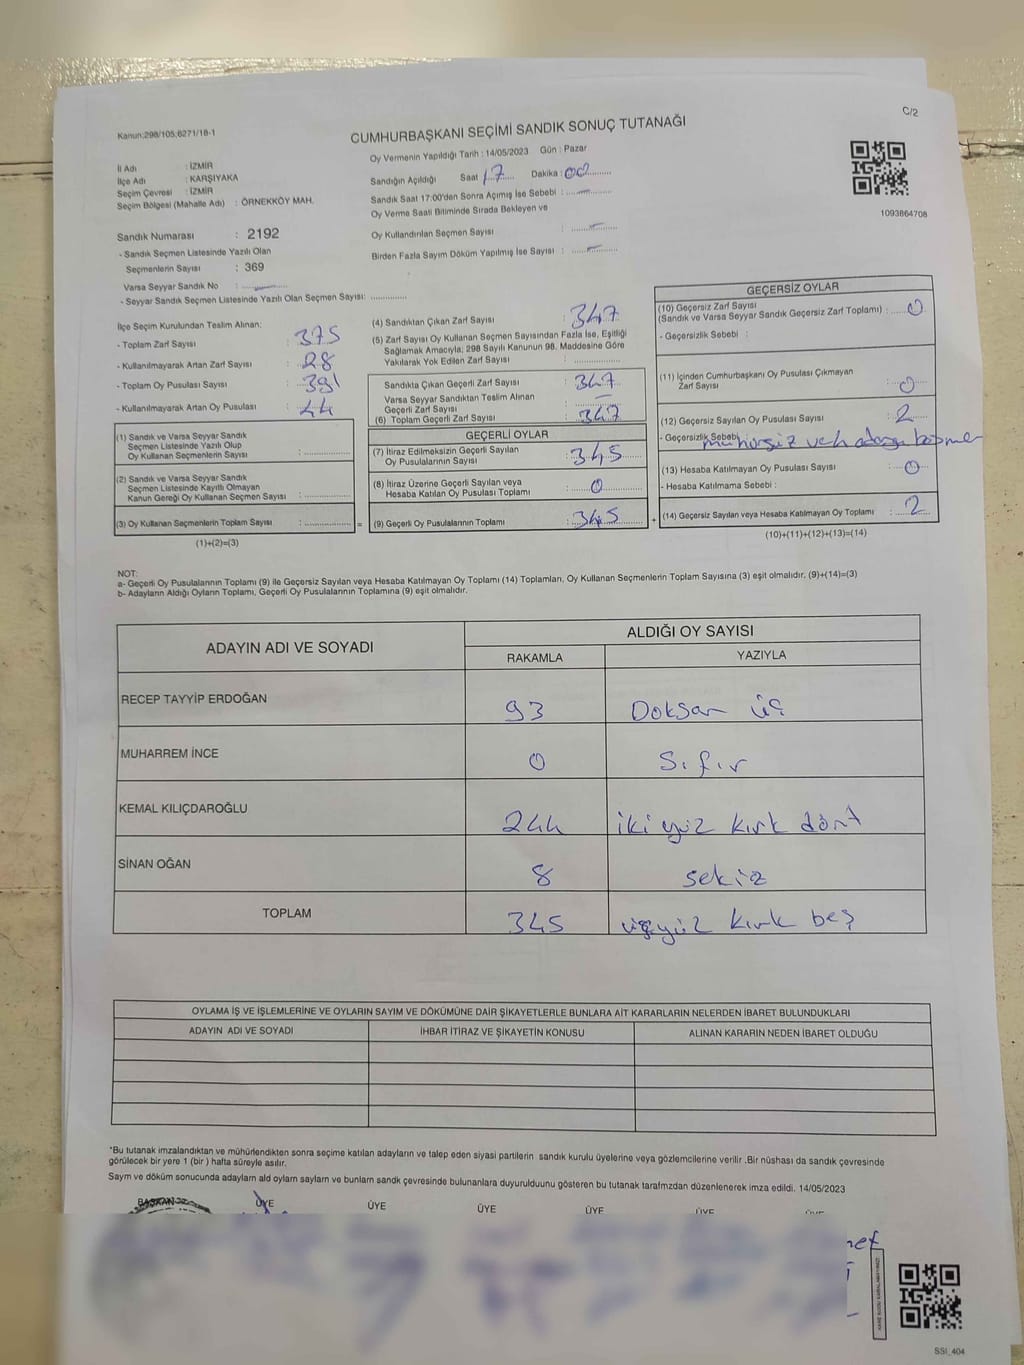 C/2
Kanun:298/105;6271/18-1
CUMHURBAŞKANI SEÇİMİ SANDIK SONUÇ TUTANAĞI
Oy Vermenin Yapıldığı Tarih : 14/05/2023 Gün : Pazar
İl Adı : İZMİR
İlçe Adı : KARŞIYAKA
Seçim Çevresi : İZMİR
Seçim Bölgesi (Mahalle Adı) : ÖRNEKKÖY MAH.
Sandığın Açıldığı Saat 17 Dakika : 00
Sandık Saat 17:00'den Sonra Açımış İse Sebebi :
Oy Verme Saati Bitiminde Sırada Bekleyen ve
Oy Kullandırılan Seçmen Sayısı :
Birden Fazla Sayım Döküm Yapılmış İse Sayısı :
1093864708
Sandık Numarası : 2192
- Sandık Seçmen Listesinde Yazılı Olan
Seçmenlerin Sayısı : 369
Varsa Seyyar Sandık No :
- Seyyar Sandık Seçmen Listesinde Yazılı Olan Seçmen Sayısı:
İlçe Seçim Kurulundan Teslim Alınan:
- Toplam Zarf Sayısı : 375
- Kullanılmayarak Artan Zarf Sayısı : 28
- Toplam Oy Pusulası Sayısı : 391
- Kullanılmayarak Artan Oy Pusulası : 44
(1) Sandık ve Varsa Seyyar Sandık
Seçmen Listesinde Yazılı Olup
Oy Kullanan Seçmenlerin Sayısı :
(2) Sandık ve Varsa Seyyar Sandık
Seçmen Listesinde Kayıtlı Olmayan
Kanun Gereği Oy Kullanan Seçmen Sayısı :
(3) Oy Kullanan Seçmenlerin Toplam Sayısı : =
(1)+(2)=(3)
(4) Sandıktan Çıkan Zarf Sayısı : 347
(5) Zarf Sayısı Oy Kullanan Seçmen Sayısından Fazla İse, Eşitliği
Sağlamak Amacıyla, 298 Sayılı Kanunun 98. Maddesine Göre
Yakılarak Yok Edilen Zarf Sayısı :
Sandıkta Çıkan Geçerli Zarf Sayısı : 347
Varsa Seyyar Sandıktan Teslim Alınan
Geçerli Zarf Sayısı :
(6) Toplam Geçerli Zarf Sayısı : 347
GEÇERLİ OYLAR
(7) İtiraz Edilmeksizin Geçerli Sayılan
Oy Pusulalarının Sayısı : 345
(8) İtiraz Üzerine Geçerli Sayılan veya
Hesaba Katılan Oy Pusulası Toplamı : 0
(9) Geçerli Oy Pusulalarının Toplamı : 345 +
GEÇERSİZ OYLAR
(10) Geçersiz Zarf Sayısı
(Sandık ve Varsa Seyyar Sandık Geçersiz Zarf Toplamı) : 0
- Geçersizlik Sebebi :
(11) İçinden Cumhurbaşkanı Oy Pusulası Çıkmayan
Zarf Sayısı : 0
(12) Geçersiz Sayılan Oy Pusulası Sayısı : 2
- Geçersizlik Sebebi mühürsüz
(13) Hesaba Katılmayan Oy Pusulası Sayısı : 0
- Hesaba Katılmama Sebebi :
(14) Geçersiz Sayılan veya Hesaba Katılmayan Oy Toplamı : 2
(10)+(11)+(12)+(13)=(14)
NOT:
a- Geçerli Oy Pusulalarının Toplamı (9) ile Geçersiz Sayılan veya Hesaba Katılmayan Oy Toplamı (14) Toplamları, Oy Kullanan Seçmenlerin Toplam Sayısına (3) eşit olmalıdır. (9)+(14)=(3)
b- Adayların Aldığı Oyların Toplamı, Geçerli Oy Pusulalarının Toplamına (9) eşit olmalıdır.
ADAYIN ADI VE SOYADI
ALDIĞI OY SAYISI
RAKAMLA YAZIYLA
RECEP TAYYİP ERDOĞAN 93 Doksan üç
MUHARREM İNCE 0 Sıfır
KEMAL KILIÇDAROĞLU 244 iki yüz kırk dört
SİNAN OĞAN 8 sekiz
TOPLAM 345 üçyüz kırk beş
OYLAMA İŞ VE İŞLEMLERİNE VE OYLARIN SAYIM VE DÖKÜMÜNE DAİR ŞİKAYETLERLE BUNLARA AİT KARARLARIN NELERDEN İBARET BULUNDUKLARI
ADAYIN ADI VE SOYADI İHBAR İTİRAZ VE ŞİKAYETİN KONUSU ALINAN KARARIN NEDEN İBARET OLDUĞU
*Bu tutanak imzalandıktan ve mühürlendikten sonra seçime katılan adayların ve talep eden siyasi partilerin sandık kurulu üyelerine veya gözlemcilerine verilir .Bir nüshası da sandık çevresinde
görülecek bir yere 1 (bir ) hafta süreyle asılır.
Sayım ve döküm sonucunda adayların ald oyların sayların ve bunların sandık çevresinde bulunanlara duyurulduunu gösteren bu tutanak tarafmzdan düzenlenerek imza edildi. 14/05/2023
BAŞKAN ÜYE ÜYE ÜYE ÜYE ÜYE
SSI_404